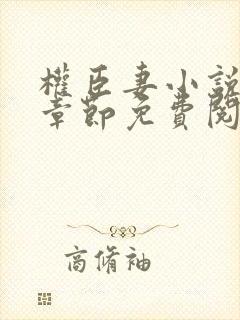 權臣妻小說
章節免費閱
高脩袖